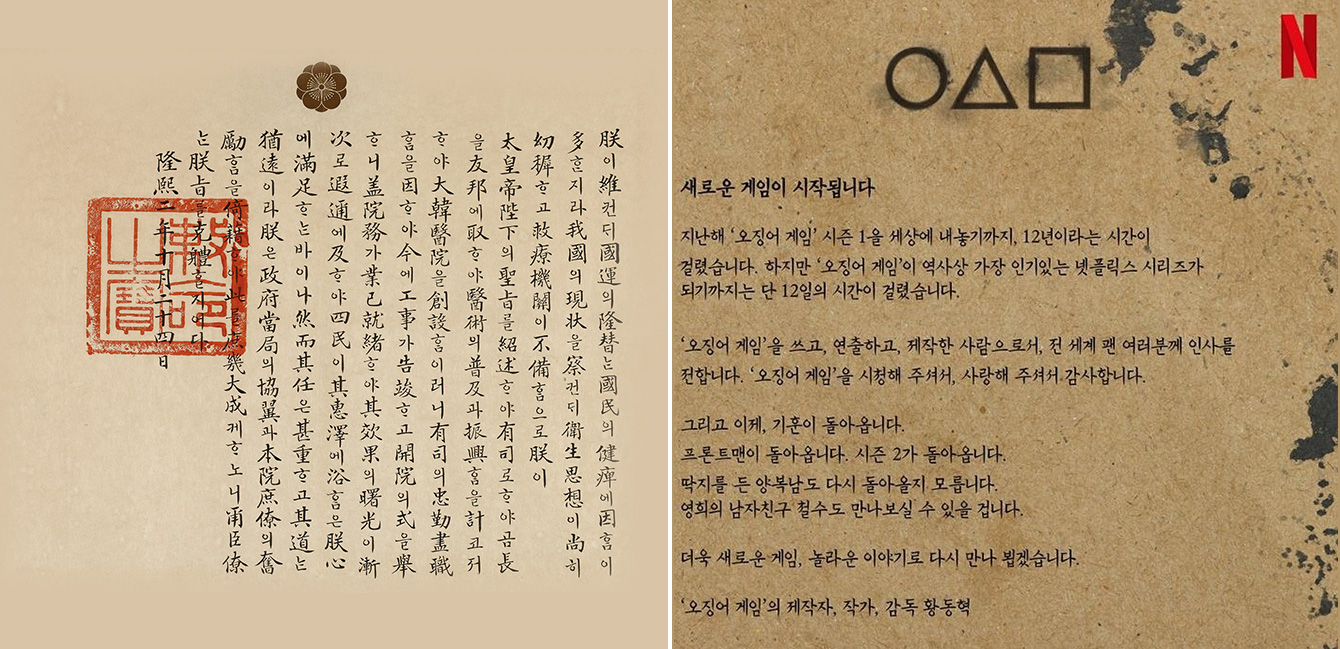 朕이維컨ᄃᆡ國運의隆替ᄂᆞᆫ國民의健痺에因ᄒᆞᆷ이
多ᄒᆞᆫ지라我國의現狀을察컨ᄃᆡ衛生思想이尙히
幼穉ᄒᆞ고救療機關이不備ᄒᆞᆷ으로朕이
太皇帝陛下의聖旨를紹述ᄒᆞ야有司로ᄒᆞ야곰長
을友邦에取ᄒᆞ야醫術의普及과振興ᄒᆞᆷ을計코져
ᄒᆞ야大韓醫院을創設ᄒᆞᆷ이러니有司의忠勤盡職
ᄒᆞᆷ을因ᄒᆞ야今에工事가告竣ᄒᆞ고開院의式을擧
ᄒᆞ니盖院務가業已就緖ᄒᆞ야其效果의曙光이漸
次로遐邇에及ᄒᆞ야四民이其惠澤에浴ᄒᆞᆷ은朕心
에滿足ᄒᆞᄂᆞᆫ바이나然而其任은甚重ᄒᆞ고其道ᄂᆞᆫ
猶遠이라朕은政府當局의協翼과本院庶僚의奮
勵ᄒᆞᆷ을倚籍ᄒᆞ야此를庶幾大成케ᄒᆞ노니爾臣僚
ᄂᆞᆫ朕旨를克體ᄒᆞᆯ지어다
隆熙二年十月二十四日
敕命之寶
N
새로운 게임이 시작됩니다
지난해 ‘오징어 게임’ 시즌 1을 세상에 내놓기까지, 12년이라는 시간이
걸렸습니다. 하지만 ‘오징어 게임’이 역사상 가장 인기있는 넷플릭스 시리즈가
되기까지는 단 12일의 시간이 걸렸습니다.
‘오징어 게임’을 쓰고, 연출하고, 제작한 사람으로서, 전 세계 팬 여러분께 인사를
전합니다. ‘오징어 게임’을 시청해 주셔서, 사랑해 주셔서 감사합니다.
그리고 이제, 기훈이 돌아옵니다.
프론트맨이 돌아옵니다. 시즌 2가 돌아옵니다.
딱지를 든 양복남도 다시 돌아올지 모릅니다.
영희의 남자친구 철수도 만나보실 수 있을 겁니다.
더욱 새로운 게임, 놀라운 이야기로 다시 만나 뵙겠습니다.
‘오징어 게임’의 제작자, 작가, 감독 황동혁